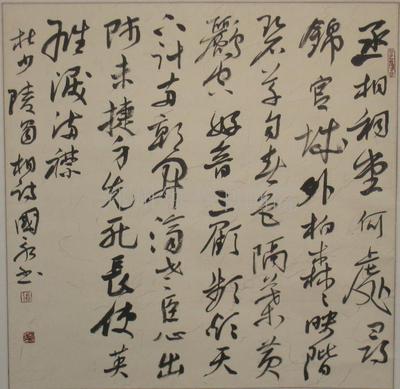 丞相祠堂何處尋
錦官城外柏森々映階
碧草自春色隔葉黃
鸝空好音三顧頻煩天
下計兩朝開濟老臣心出
師未捷身先死長使英
雄淚滿襟
杜少陵蜀相詩國永书